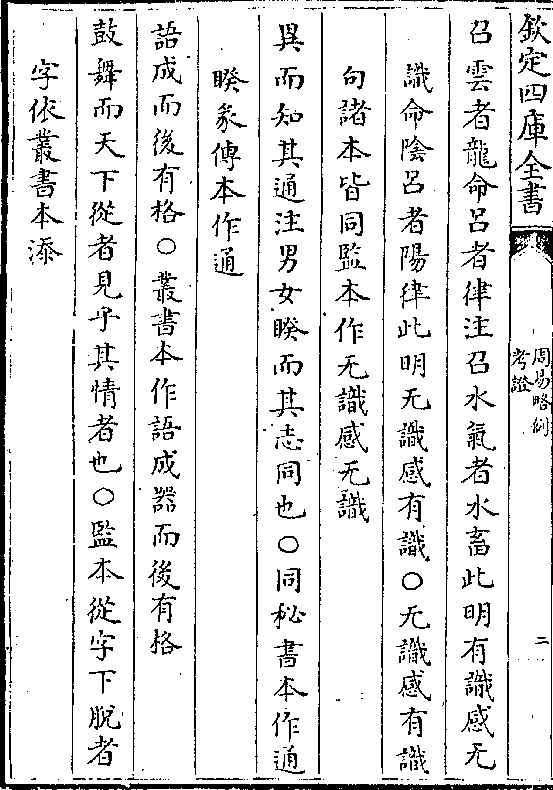 欽定四庫全書
周易略例
考證
二
召雲者龍命呂者律注召水氣者水畜此明有識感无
識命陰呂者陽律此明无識感有識○无識感有識
句諸本皆同監本作无識感无識
異而知其通注男女睽而其志同也○同秘書本作通
睽彖傳本作通
語成而後有格○叢書本作語成器而後有格
鼓舞而天下從者見乎其情者也○監本從字下脫者
字依叢書本添